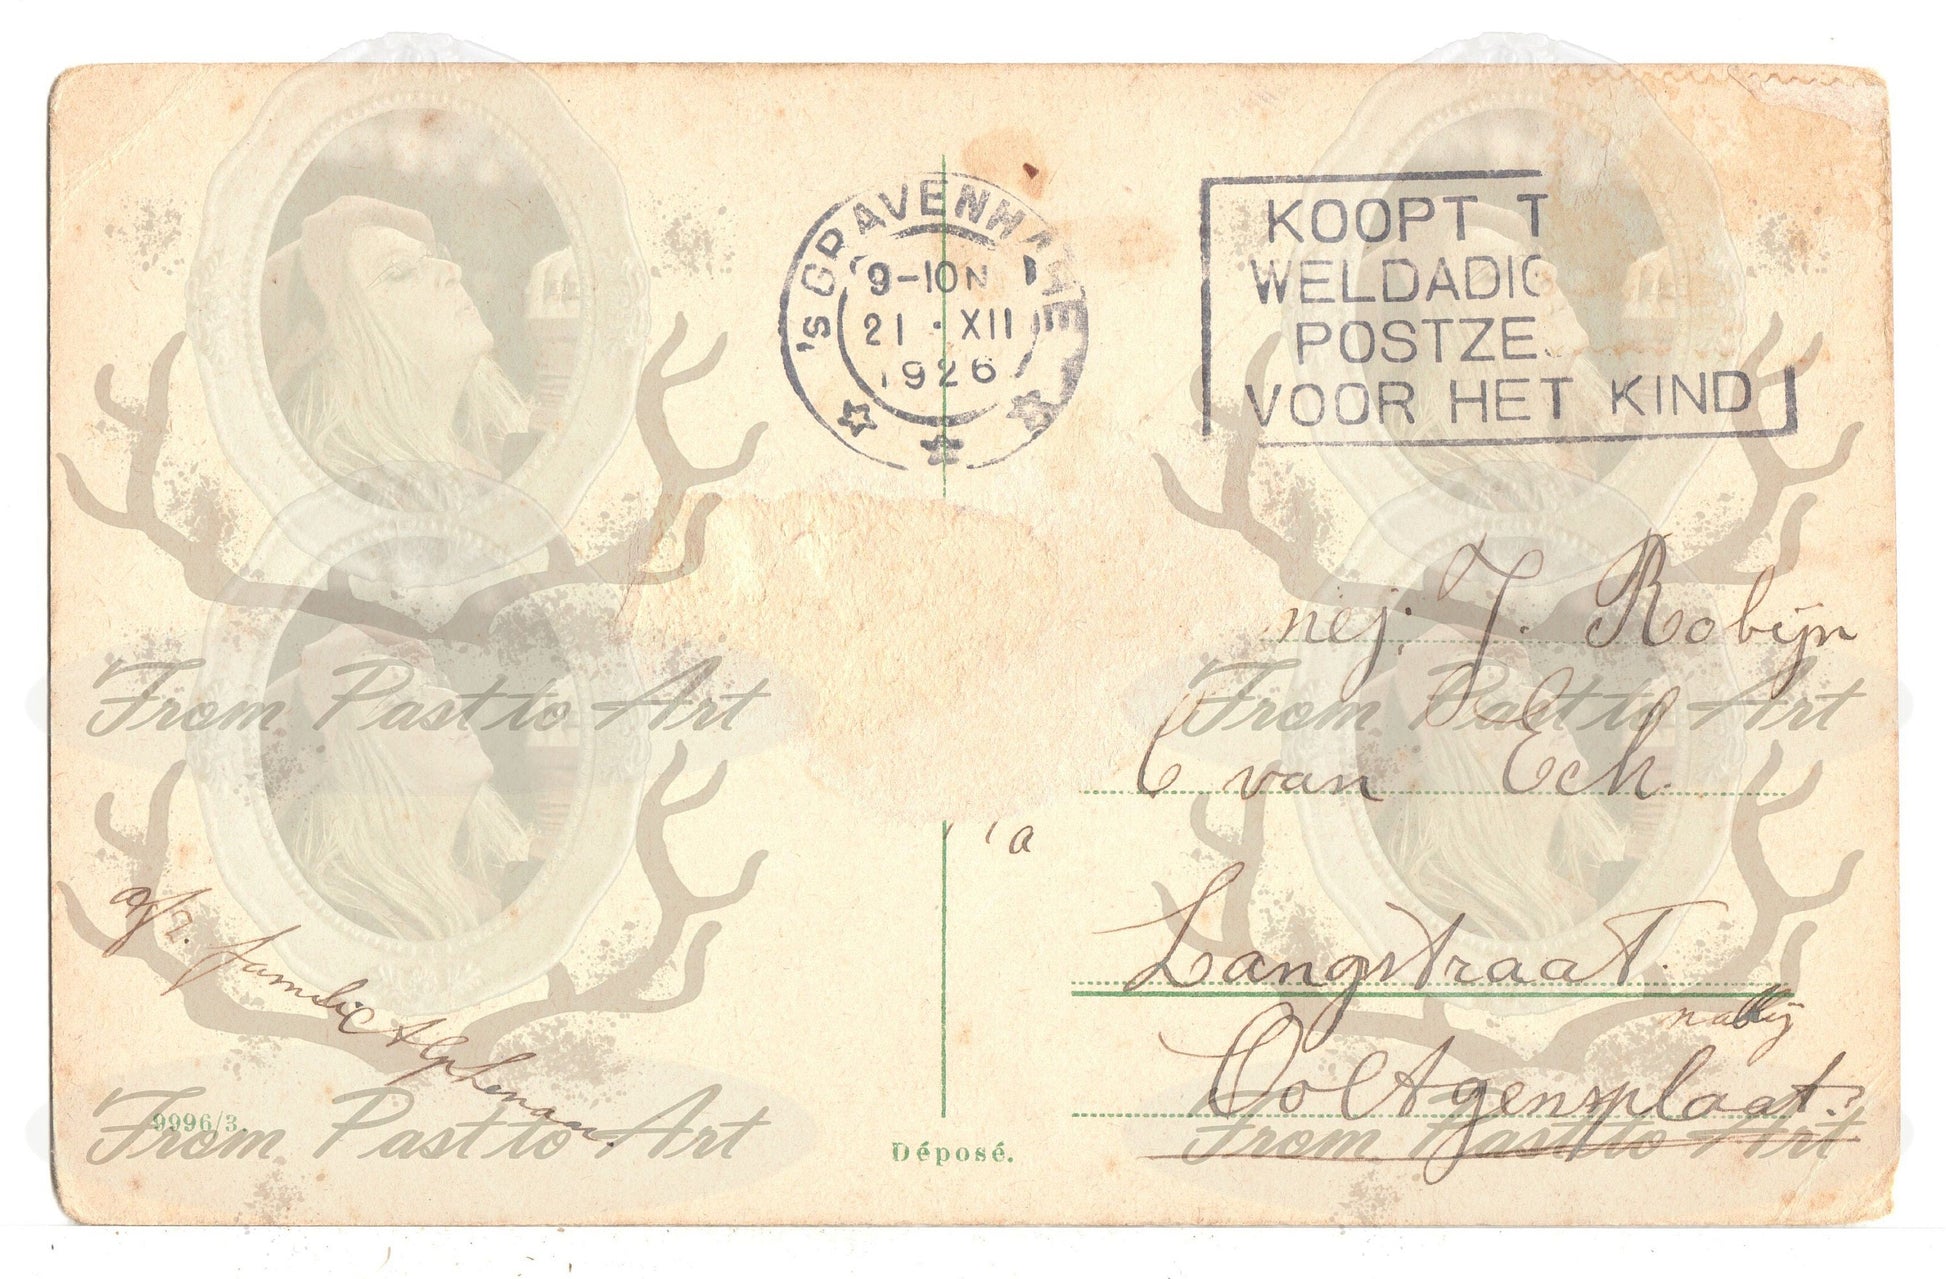 'S GRAVENHAGE
9-10N
21 · XII
1926
KOOPT T
WELDADIG
POSTZE
VOOR HET KIND
nej. J. Robijn
C van Eck.
'a
Langstraat.
nabij
Ooltgensplaat.
afz. familie Alphenaar.
9996/3.
Déposé.
From Past to Art
From Past to Art
From Past to Art
From Past to Art